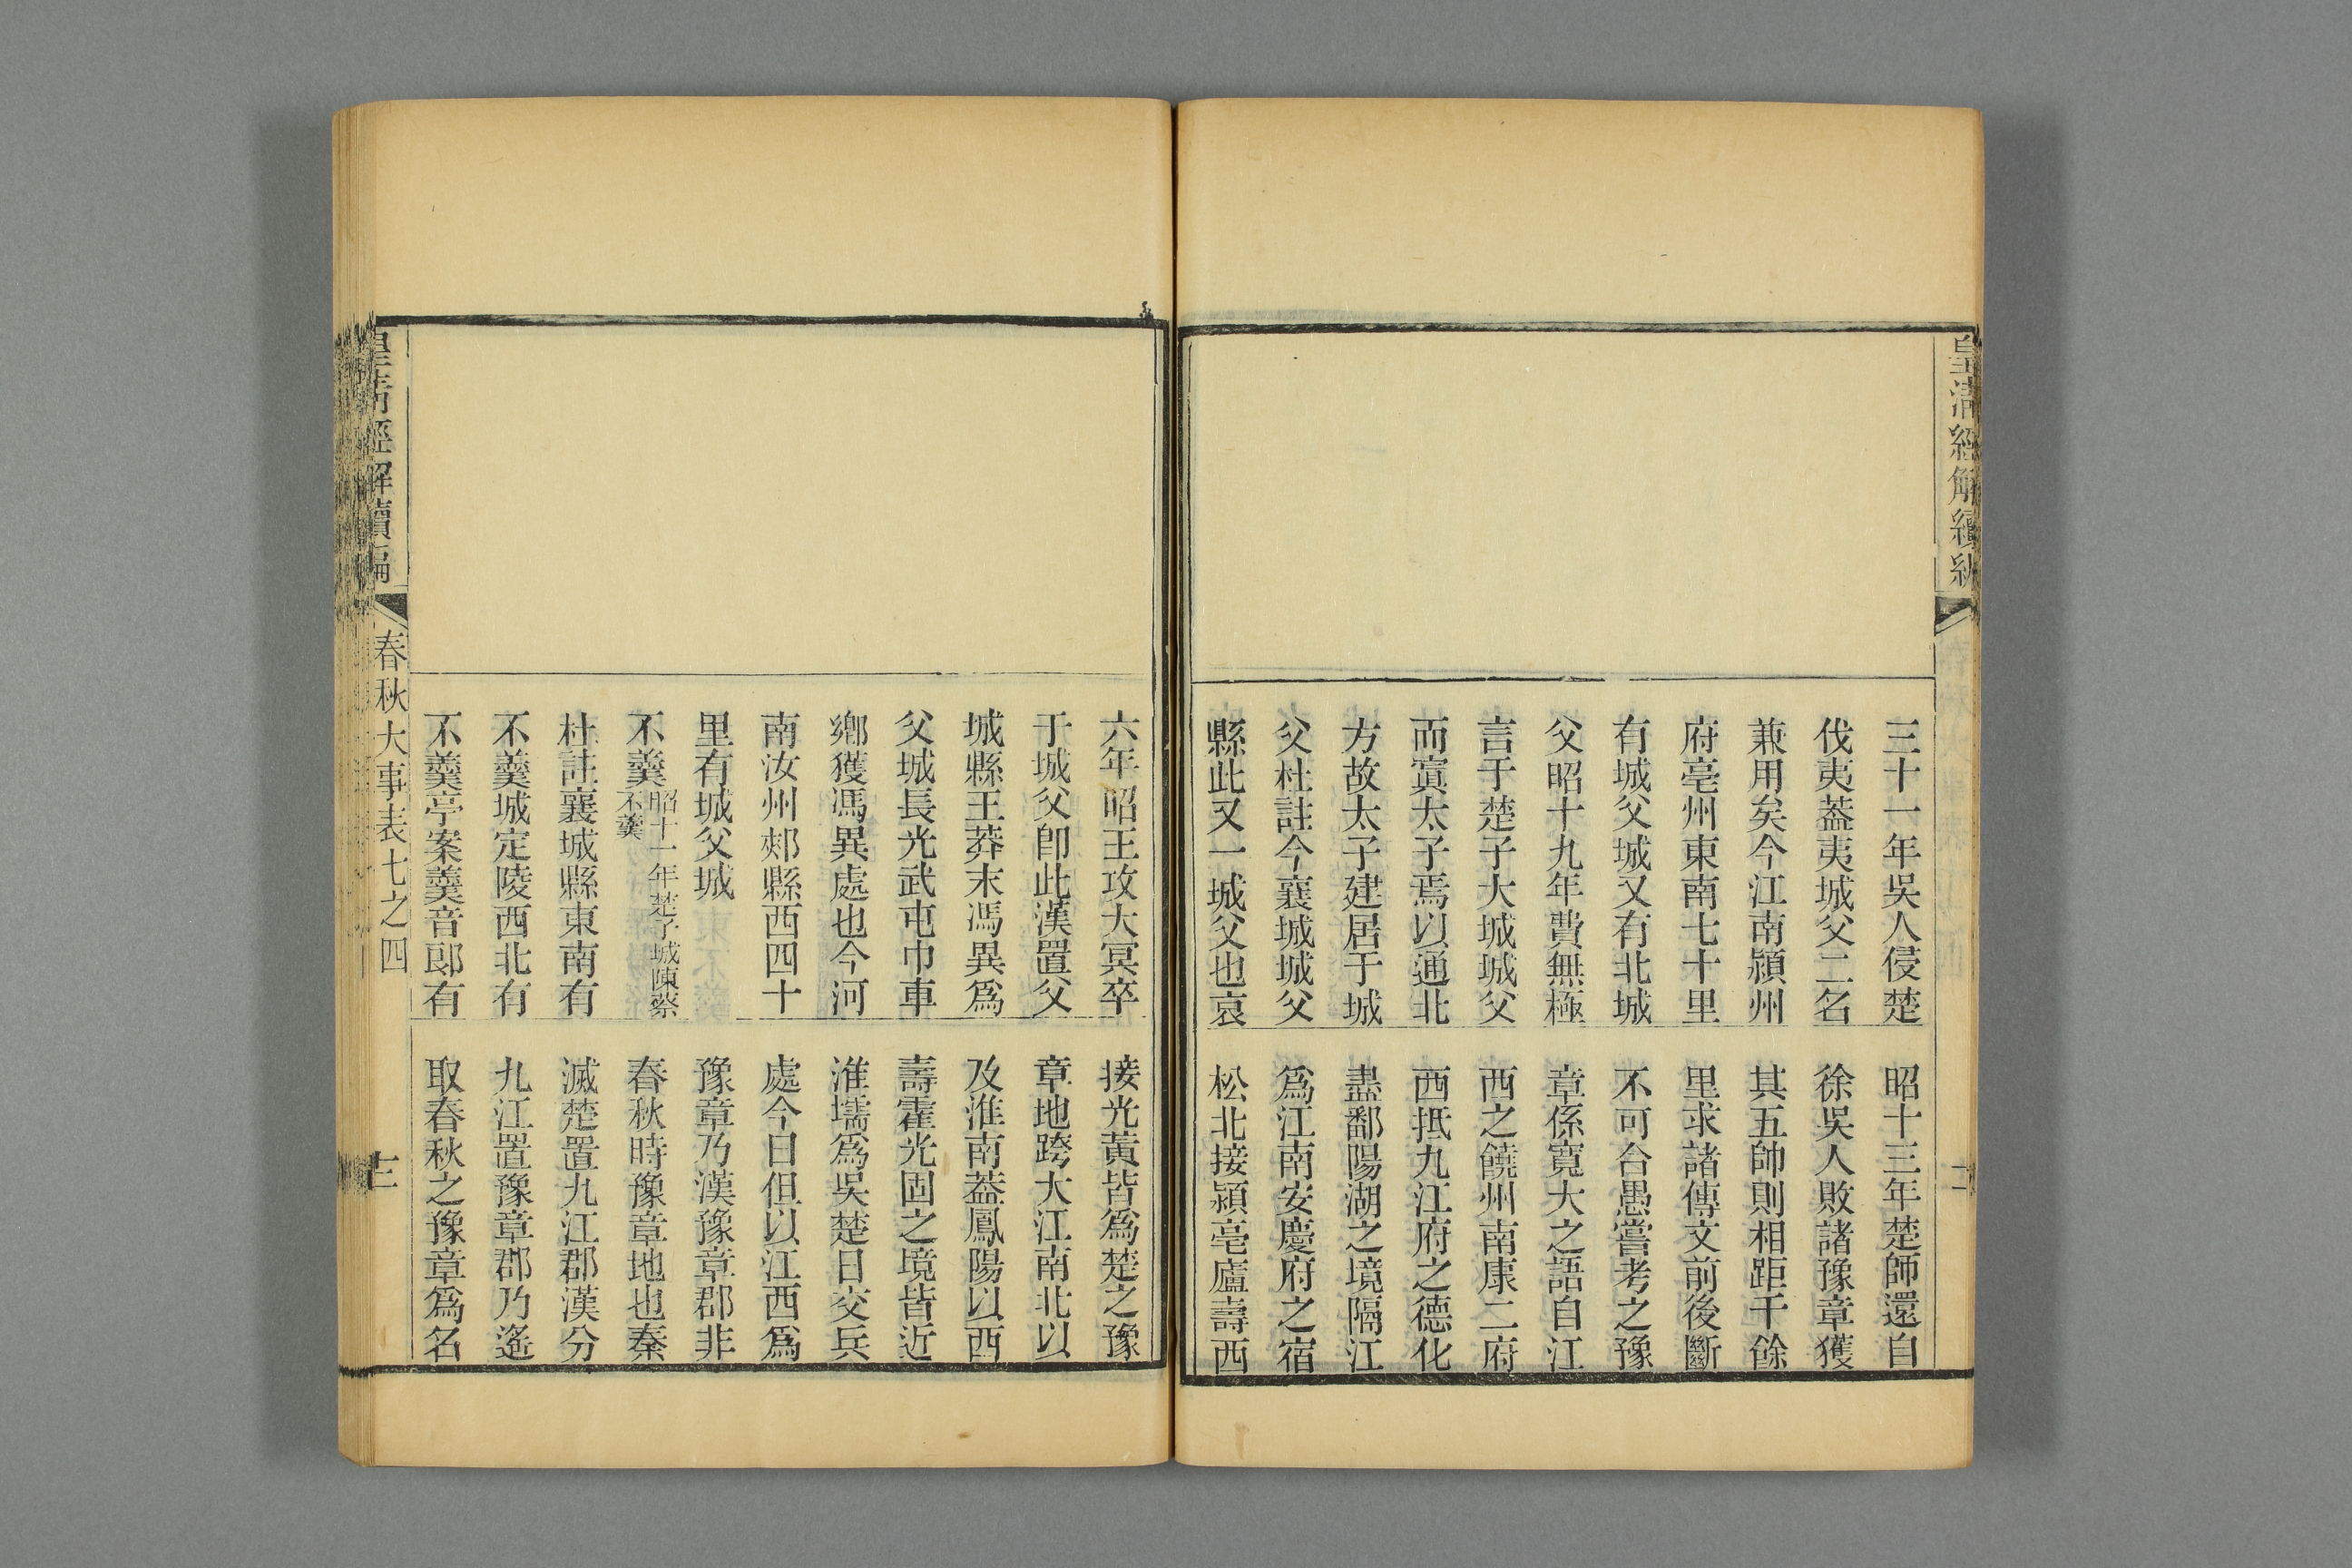 皇清經解續編
三十一年吳人侵楚
伐夷葢夷城父二名
兼用矣今江南潁州
府亳州東南七十里
有城父城又有北城
父昭十九年費無極
言于楚子大城城父
而寘太子焉以通北
方故太子建居于城
父杜註今襄城城父
縣此又一城父也哀
昭十三年楚師還自
徐吳人敗諸豫章獲
其五帥則相距千餘
里求諸傳文前後斷
不可合愚嘗考之豫
章係寬大之語自江
西之饒州南康二府
西抵九江府之德化
盡鄱陽湖之境隔江
爲江南安慶府之宿
松北接潁亳廬壽西
六年昭王攻大冥卒
于城父卽此漢置父
城縣王莽末馮異爲
父城長光武屯巾車
鄉獲馮異處也今河
南汝州郟縣西四十
里有城父城
不羹昭十一年楚子城陳蔡
不羹
杜註襄城縣東南有
不羹城定陵西北有
不羹亭案羹音郎有
接光黃皆爲楚之豫
章地跨大江南北以
及淮南葢鳳陽以西
壽霍光固之境皆近
淮壖爲吳楚日交兵
處今日但以江西爲
豫章乃漢豫章郡非
春秋時豫章地也秦
滅楚置九江郡漢分
九江置豫章郡乃遙
取春秋之豫章爲名
皇清經解續編
春秋大事表七之四